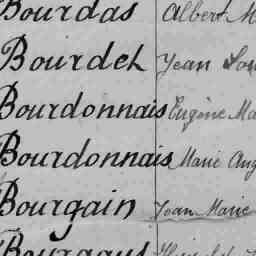 Bourdas Albert M
Bourdel Jean Lou
Bourdonnais Eugène Ma
Bourdonnais Marie Aug
Bourgain Jean Marie